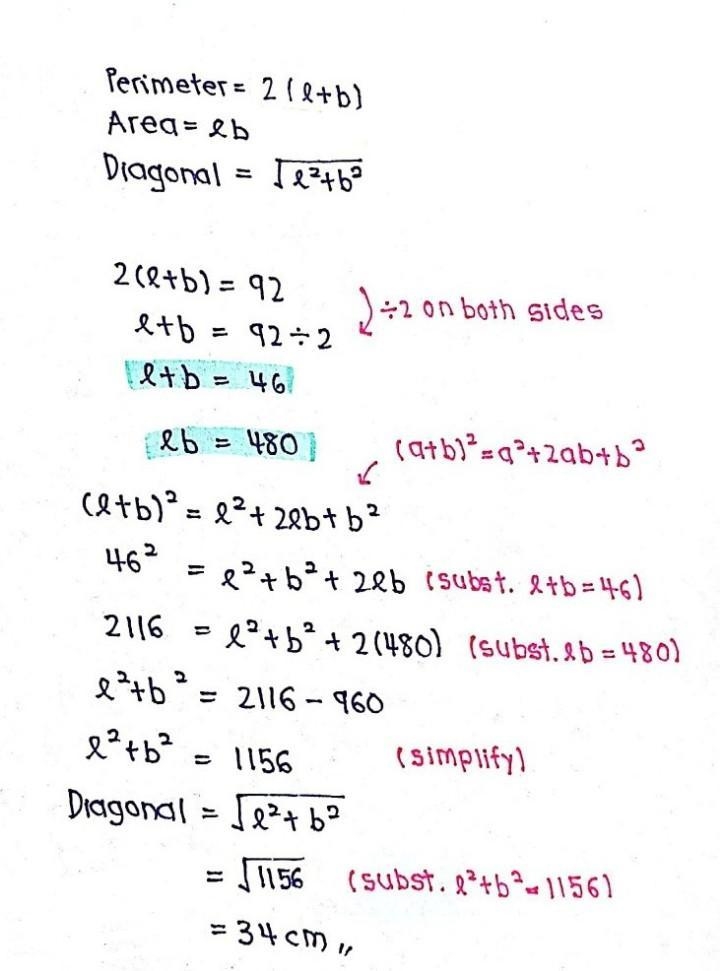 Perimeter = 2(l+b)
Area = lb
Diagonal = √l²+b²
2(l+b) = 92
÷2 on both sides
l+b = 92÷2
l+b = 46
lb = 480
(a+b)²=a²+2ab+b²
(l+b)² = l²+2lb+b²
46² = l²+b²+2lb (subst. l+b=46)
2116 = l²+b²+2(480) (subst. lb=480)
l²+b² = 2116-960
l²+b² = 1156 (simplify)
Diagonal = √l²+b²
= √1156 (subst. l²+b²=1156)
= 34 cm,,